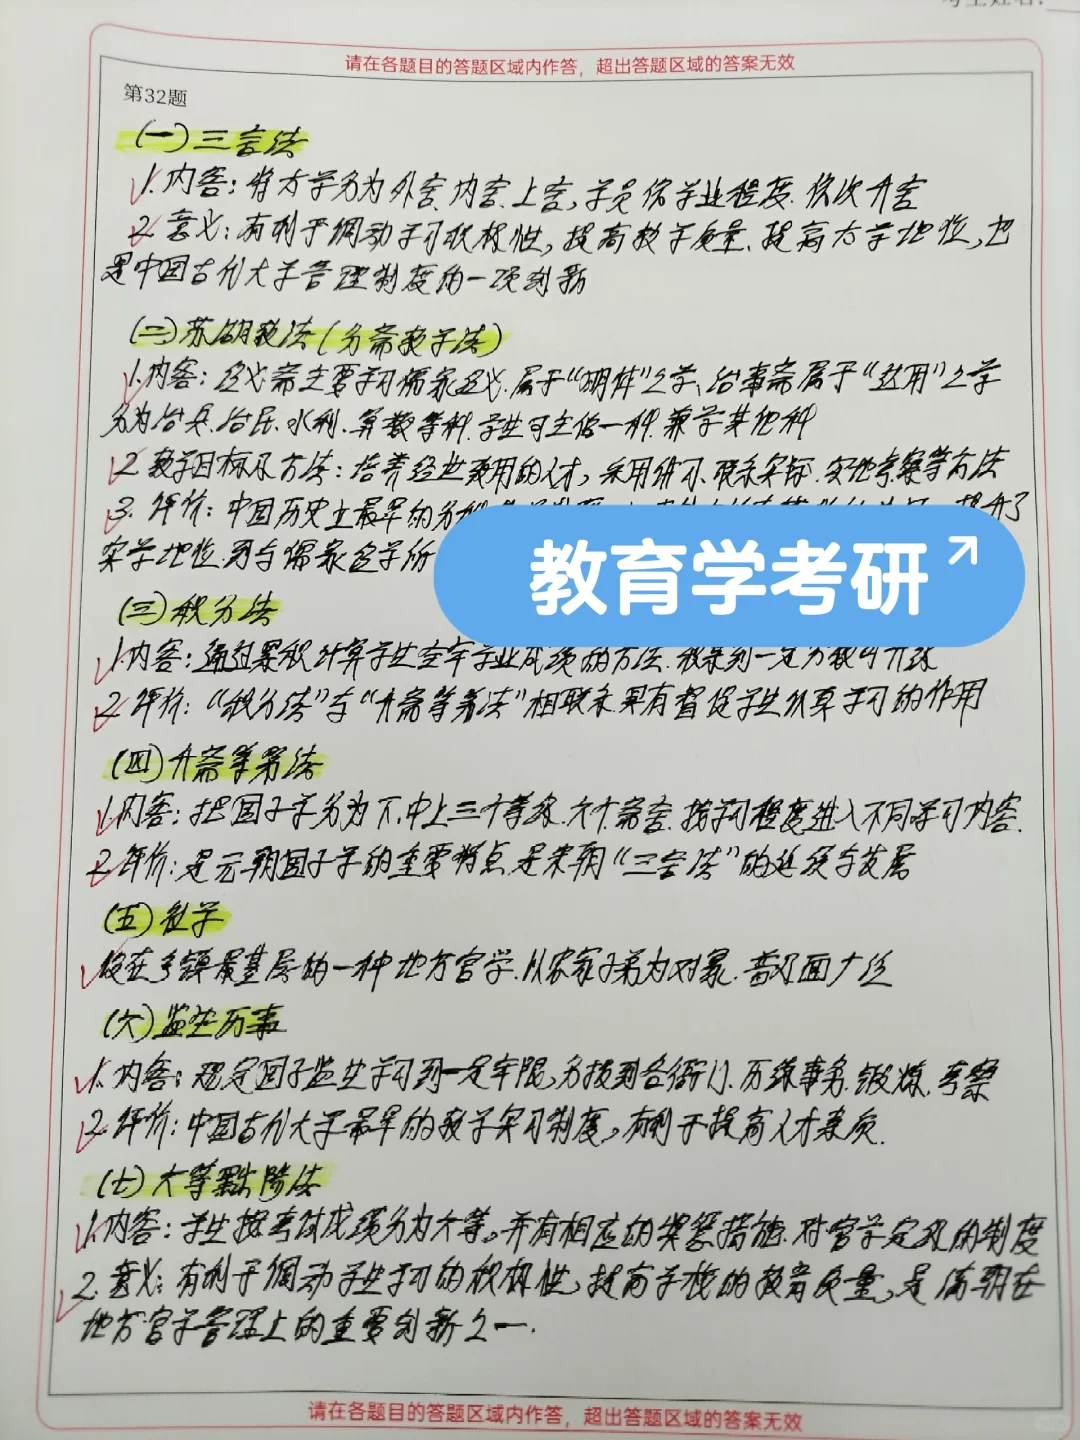 考生姓名:
请在各题目的答题区域内作答，超出答题区域的答案无效
第32题
(一)三舍法
1.内容：将太学分为外舍、内舍、上舍，学员依学业程度、依次升舍
2.意义：有利于调动学习积极性，提高教学质量、提高太学地位，也
是中国古代大学管理制度的一项创新
(二)苏湖教法(分斋教学法)
1.内容：经义斋主要学习儒家经义，属于“明体”之学、治事斋属于“达用”之学
分为治兵、治民、水利、算数等科，学生可主修一种，兼学其他种
2.教学目标及方法：培养经世致用的人才，采用讲习、联系实际、实地考察等方法
3.评价：中国历史上最早的分 提升了
实学地位，对 儒家
教育学考研
(三)积分法
1.内容：通过累积计算学生全年学业成绩的方法，积累到一定分数可升级
2.评价：“积分法”与“升斋等第法”相联系，具有督促学生认真学习的作用
(四)升斋等第法
1.内容：把国子学分为下、中、上三个等级，六个斋舍，按学习程度进入不同学习内容.
2.评价：是元朝国子学的重要特点，是宋朝“三舍法”的延续与发展
(五)社学
设在乡镇最基层的一种地方官学，以农家子弟为对象，普及面广泛
(六)监生历事
1.内容：规定国子监生学习到一定年限，分拨到各衙门、历练事务、锻炼、考察
2.评价：中国古代大学最早的教学实习制度，有利于提高人才素质.
(七)六等黜陟法
1.内容：学生按考试成绩分为六等，并有相应的奖惩措施，对官学定级的制度
2.意义：有利于调动学生学习的积极性，提高学校的教育质量，是清朝在
地方官学管理上的重要创新之一.
请在各题目的答题区域内作答，超出答题区域的答案无效